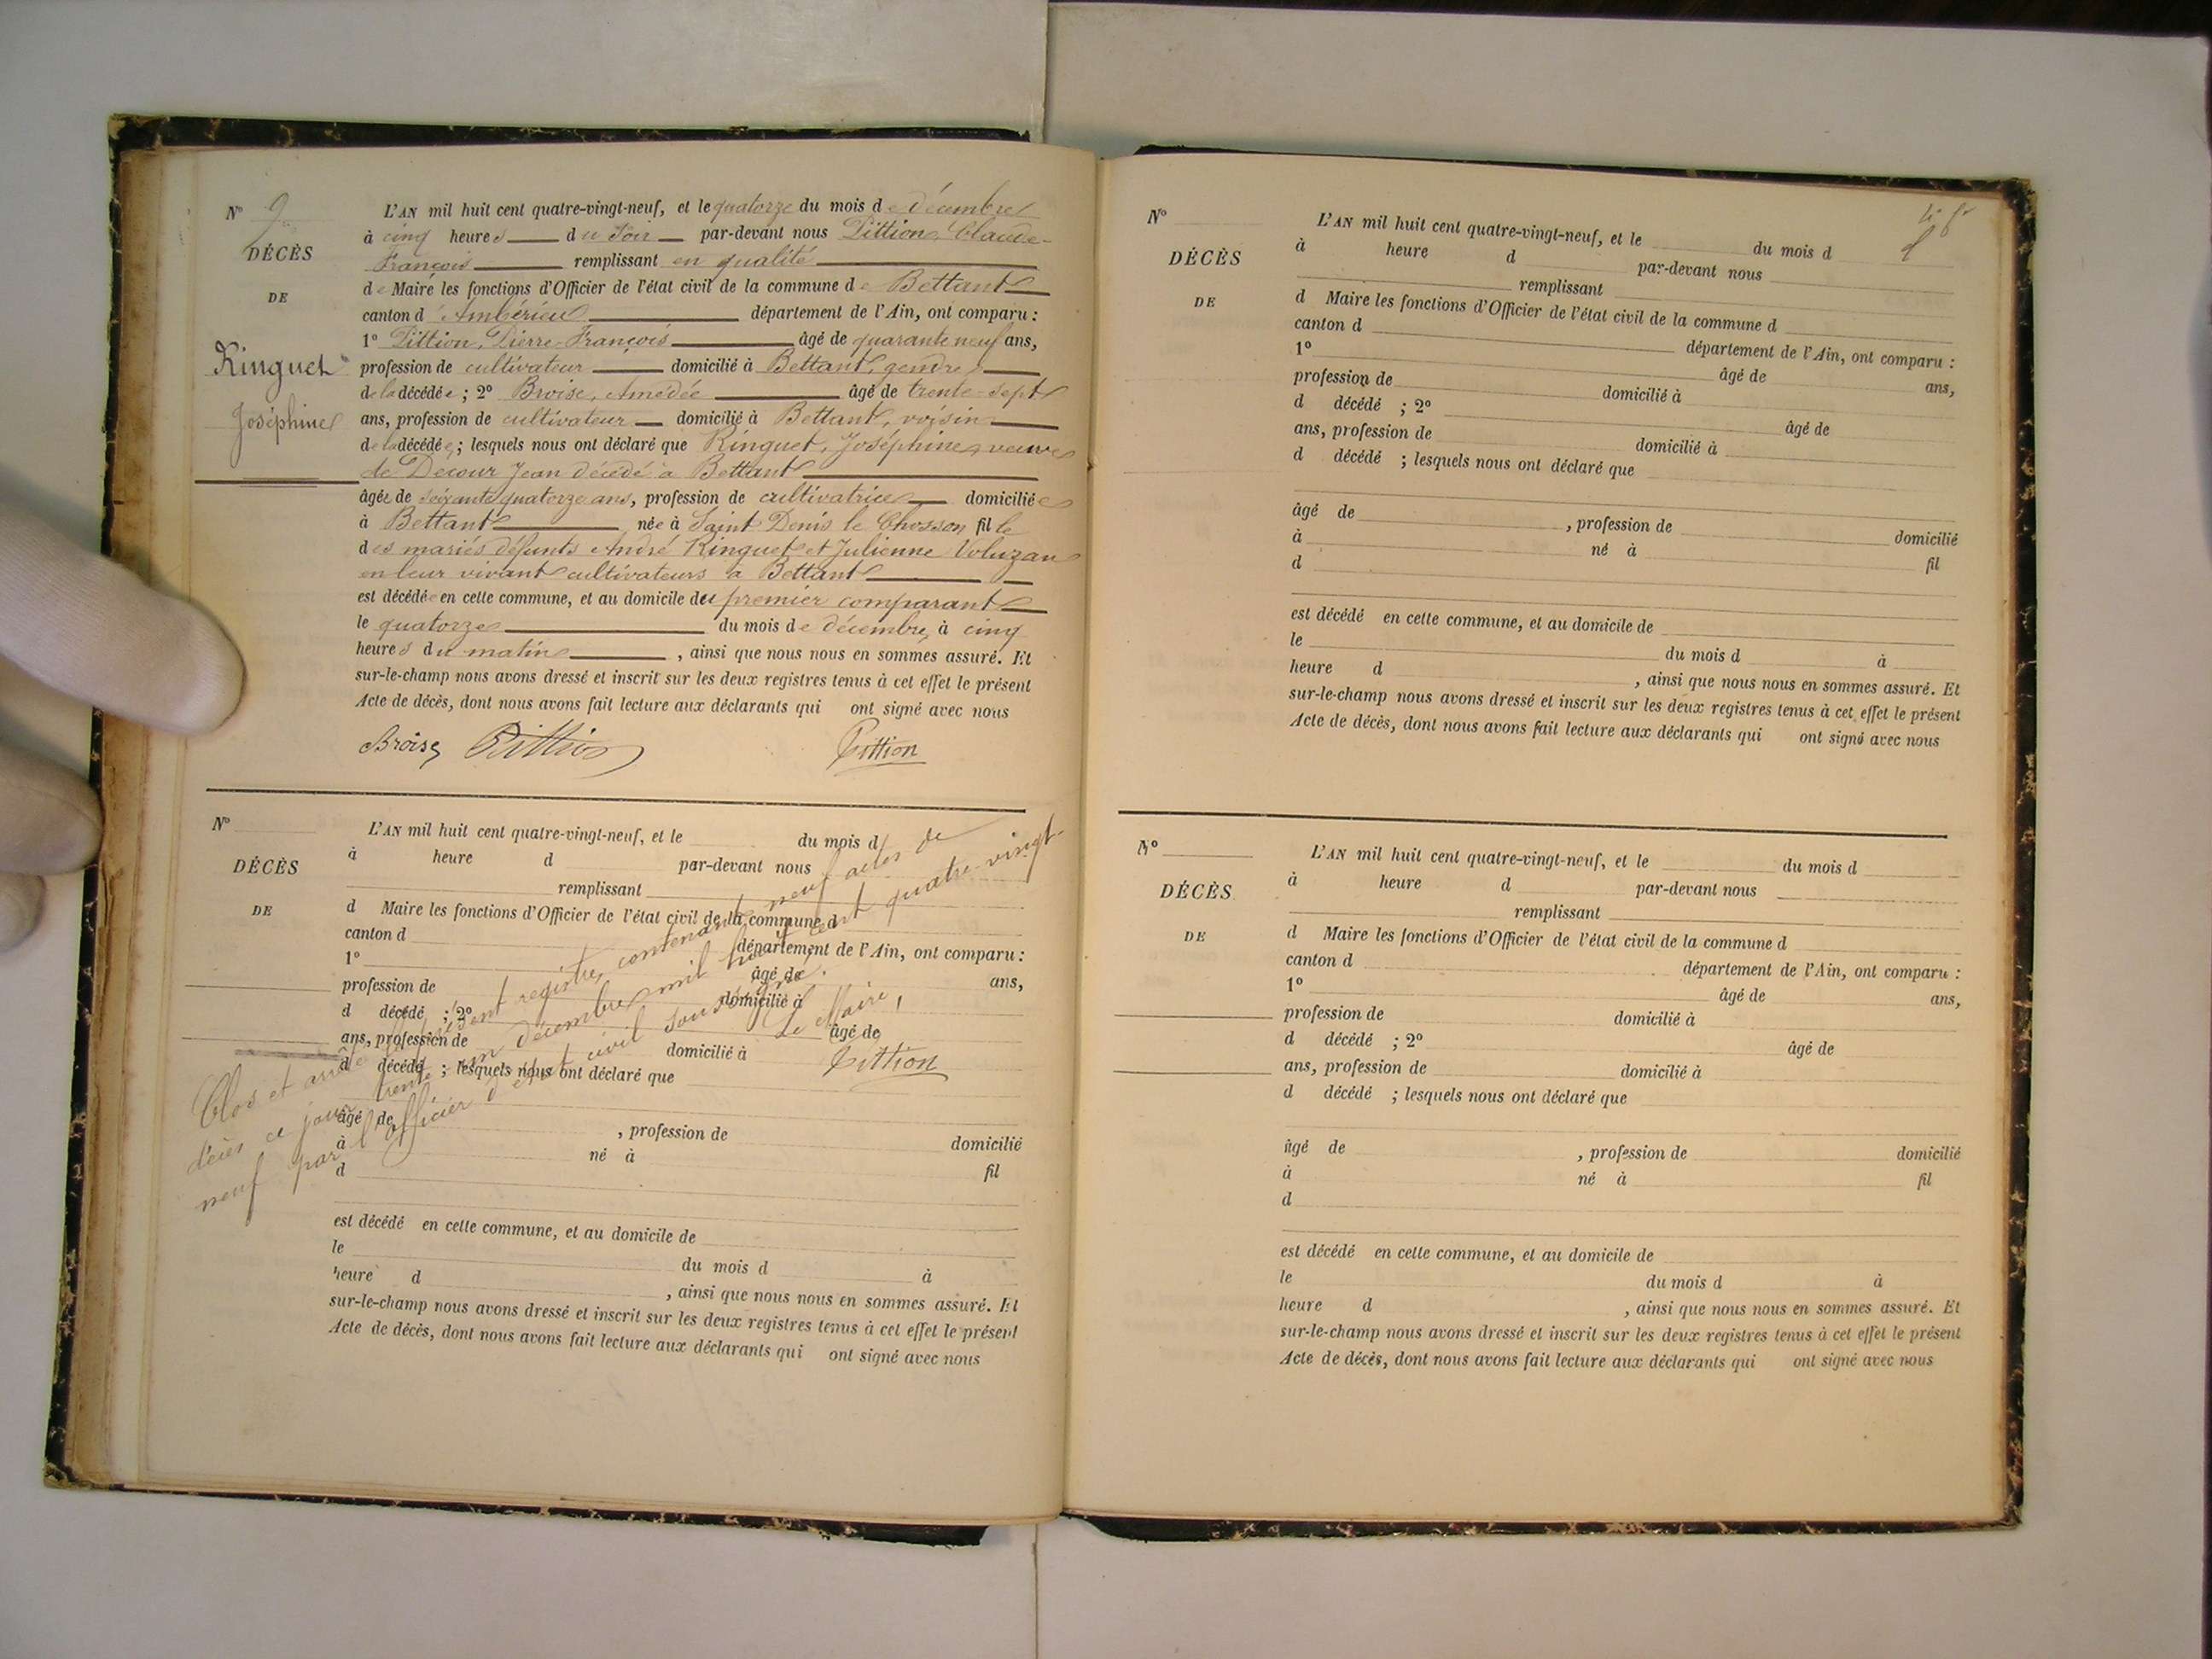 N° 9
DÉCÈS
DE
Ringuet
Joséphine
L'AN mil huit cent quatre-vingt-neuf, et le quatorze du mois de décembre
à cinq heures du soir par-devant nous Pittion, Claude-
François remplissant en qualité
de Maire les fonctions d'Officier de l'état civil de la commune de Bettant
canton d'Ambérieu département de l'Ain, ont comparu :
1° Pittion, Pierre-François âgé de quarante neuf ans,
profession de cultivateur domicilié à Bettant, gendre
de la décédée ; 2° Broise, Amédée âgé de trente-sept
ans, profession de cultivateur domicilié à Bettant, voisin
de la décédée ; lesquels nous ont déclaré que Ringuet, Joséphine, veuve
de Décour Jean décédé à Bettant
âgée de soixante quatorze ans, profession de cultivatrice domiciliée
à Bettant née à Saint Denis le Chosson fille
des mariés défunts André Ringuet et Julienne Voluzan
en leur vivant cultivateurs à Bettant
est décédée en cette commune, et au domicile du premier comparant
le quatorze du mois de décembre, à cinq
heures du matin , ainsi que nous nous en sommes assuré. Et
sur-le-champ nous avons dressé et inscrit sur les deux registres tenus à cet effet le présent
Acte de décès, dont nous avons fait lecture aux déclarants qui ont signé avec nous
Broise Pittion Pittion
N°
DÉCÈS
DE
L'AN mil huit cent quatre-vingt-neuf, et le du mois d
à heure d par-devant nous
remplissant
d Maire les fonctions d'Officier de l'état civil de la commune d
canton d département de l'Ain, ont comparu :
1° âgé de ans,
profession de domicilié à
d décédé ; 2° âgé de
ans, profession de domicilié à
d décédé ; lesquels nous ont déclaré que
âgé de , profession de domicilié
à né à fil
d
est décédé en cette commune, et au domicile de
le du mois d à
heure d , ainsi que nous nous en sommes assuré. Et
sur-le-champ nous avons dressé et inscrit sur les deux registres tenus à cet effet le présent
Acte de décès, dont nous avons fait lecture aux déclarants qui ont signé avec nous
Clos et arrêté le présent registre contenant neuf actes de
décès ce jour trente-un décembre mil huit cent quatre-vingt-
neuf par l'officier d'état civil soussigné.
Le Maire,
Pittion
N°
DÉCÈS
DE
L'AN mil huit cent quatre-vingt-neuf, et le du mois d
à heure d par-devant nous
remplissant
d Maire les fonctions d'Officier de l'état civil de la commune d
canton d département de l'Ain, ont comparu :
1° âgé de ans,
profession de domicilié à
d décédé ; 2° âgé de
ans, profession de domicilié à
d décédé ; lesquels nous ont déclaré que
âgé de , profession de domicilié
à né à fil
d
est décédé en cette commune, et au domicile de
le du mois d à
heure d , ainsi que nous nous en sommes assuré. Et
sur-le-champ nous avons dressé et inscrit sur les deux registres tenus à cet effet le présent
Acte de décès, dont nous avons fait lecture aux déclarants qui ont signé avec nous
N°
DÉCÈS
DE
L'AN mil huit cent quatre-vingt-neuf, et le du mois d
à heure d par-devant nous
remplissant
d Maire les fonctions d'Officier de l'état civil de la commune d
canton d département de l'Ain, ont comparu :
1° âgé de ans,
profession de domicilié à
d décédé ; 2° âgé de
ans, profession de domicilié à
d décédé ; lesquels nous ont déclaré que
âgé de , profession de domicilié
à né à fil
d
est décédé en cette commune, et au domicile de
le du mois d à
heure d , ainsi que nous nous en sommes assuré. Et
sur-le-champ nous avons dressé et inscrit sur les deux registres tenus à cet effet le présent
Acte de décès, dont nous avons fait lecture aux déclarants qui ont signé avec nous